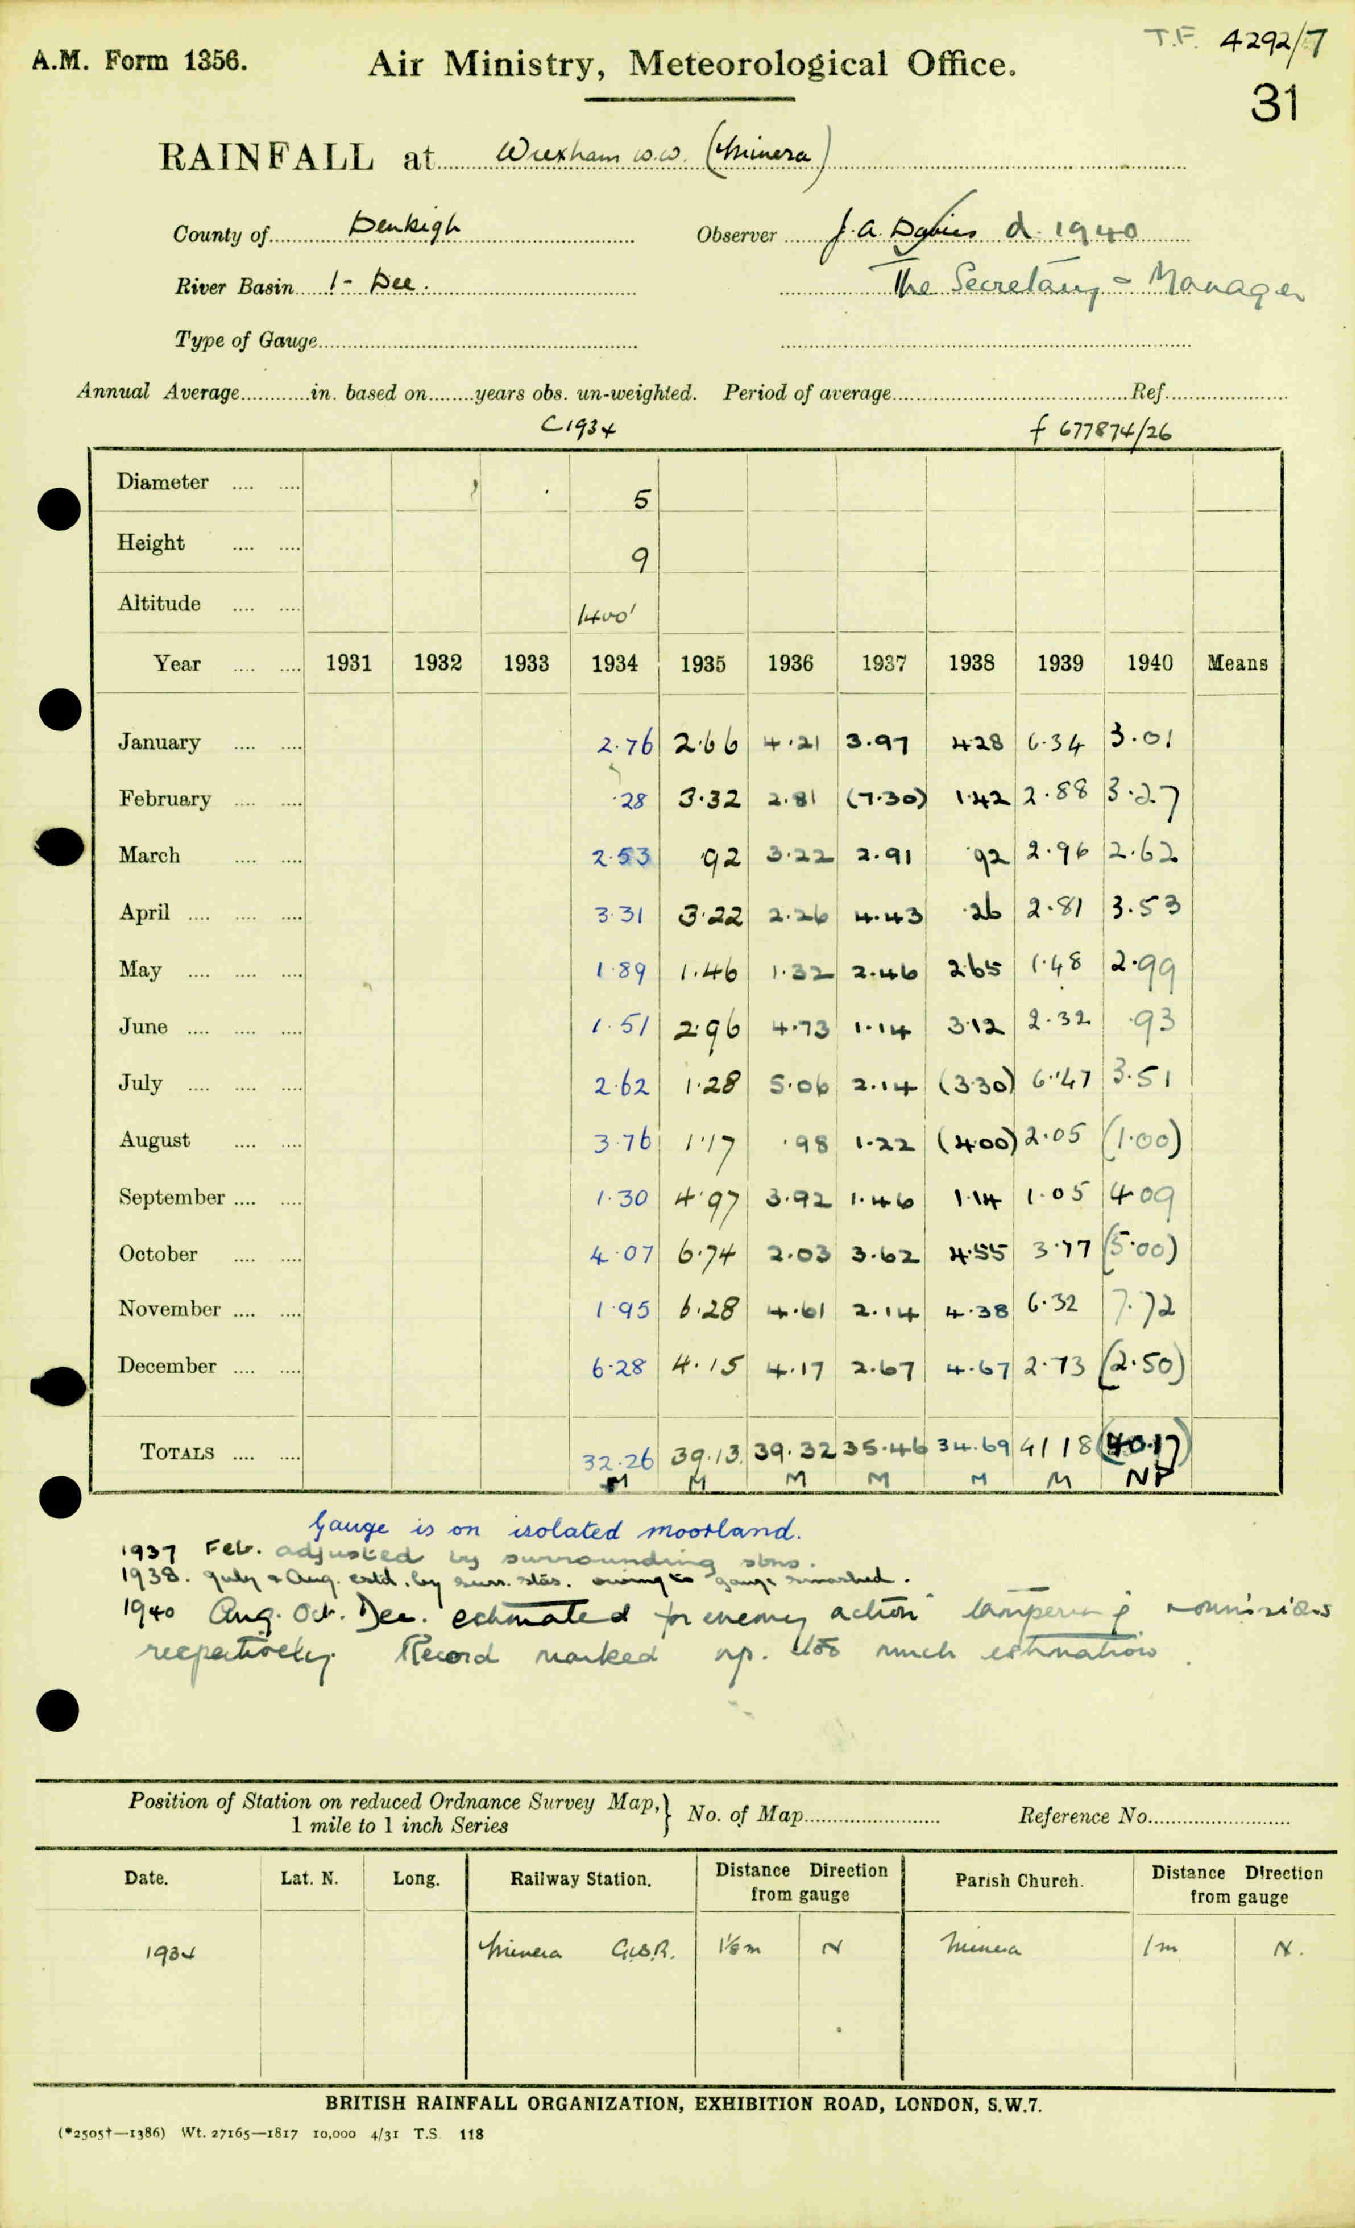 T.F. 4292/7
A.M. Form 1356. Air Ministry, Meteorological Office.
31
RAINFALL at Wrexham W.W. (Minera)
County of Denbigh Observer J. A. Davies d. 1940
River Basin 1 - Dee. The Secretary - Manager
Type of Gauge
Annual Average in. based on years obs. un-weighted. Period of average Ref.
C1934 f 677874/26
Diameter 5
Height 9
Altitude 1400'
Year 1931 1932 1933 1934 1935 1936 1937 1938 1939 1940 Means
January 2.76 2.66 4.21 3.97 4.28 6.34 3.01
February .28 3.32 2.81 (7.30) 1.42 2.88 3.27
March 2.53 .92 3.22 2.91 .92 2.96 2.62
April 3.31 3.22 2.26 4.43 .26 2.81 3.53
May 1.89 1.46 1.32 2.46 2.65 1.48 2.99
June 1.51 2.96 4.73 1.14 3.12 2.32 .93
July 2.62 1.28 5.06 2.14 (3.30) 6.47 3.51
August 3.76 1.17 .98 1.22 (4.00) 2.05 (1.00)
September 1.30 4.97 3.92 1.46 1.14 1.05 4.09
October 4.07 6.74 2.03 3.62 4.55 3.77 (5.00)
November 1.95 6.28 4.61 2.14 4.38 6.32 7.72
December 6.28 4.15 4.17 2.67 4.67 2.73 (2.50)
TOTALS 32.26 39.13 39.32 35.46 34.69 41.18 (40.17)
M M M M M M NP
Gauge is on isolated moorland.
1937 Feb. adjusted by surrounding stns.
1938. July & Aug. estd. by surr. stns. owing to gauge smashed.
1940 Aug. Oct. Dec. estimated for enemy action tampering &
respectively. Record marked np. too much estimation.
Position of Station on reduced Ordnance Survey Map, } No. of Map Reference No.
1 mile to 1 inch Series
Date. Lat. N. Long. Railway Station. Distance Direction from gauge Parish Church. Distance Direction from gauge
1934 Minera G.W.R. 1⅛m N Minera 1m N.
BRITISH RAINFALL ORGANIZATION, EXHIBITION ROAD, LONDON, S.W.7.
(*2505†—1386) Wt. 27165—1817 10,000 4/31 T.S. 118